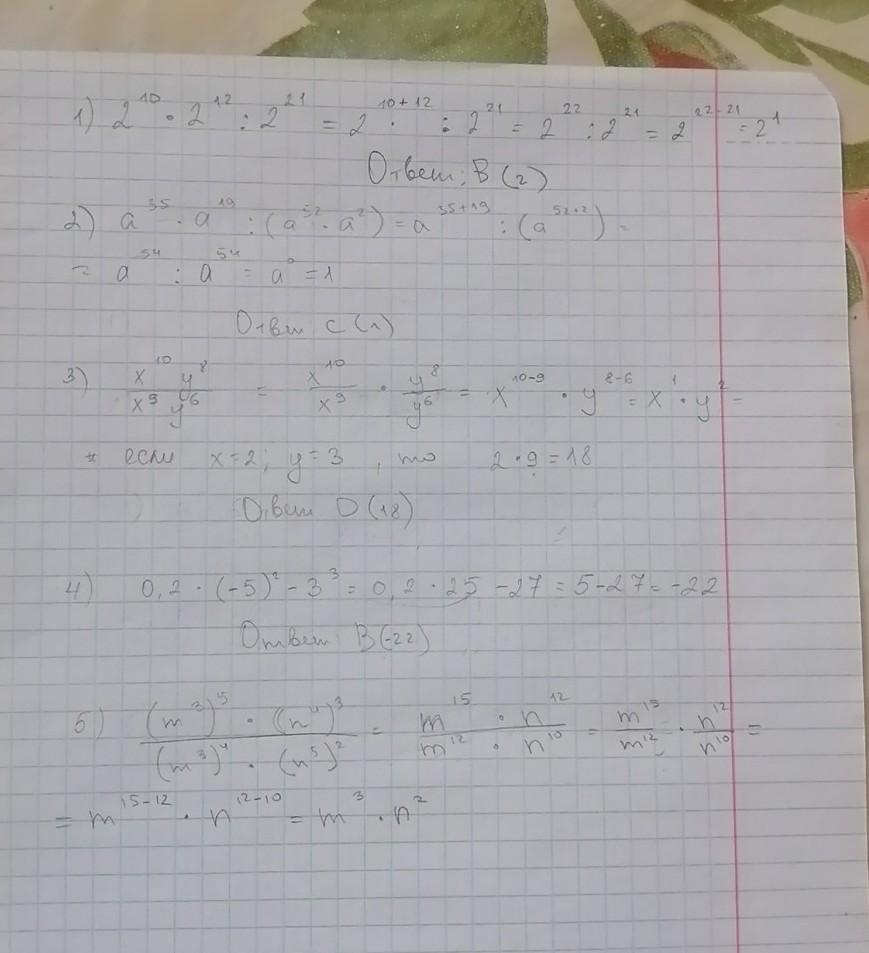 1) 2^10 · 2^12 : 2^21 = 2^10+12 : 2^21 = 2^22 : 2^21 = 2^22-21 = 2^1
Ответ: В (2)
2) a^35 · a^19 : (a^52 · a^2) = a^35+19 : (a^52+2) =
= a^54 : a^54 = a^0 = 1
Ответ С (1)
3) x^10 y^8 / x^9 y^6 = x^10 / x^9 · y^8 / y^6 = x^10-9 · y^8-6 = x^1 · y^2 =
* если x=2; y=3, то 2·9=18
Ответ D (18)
4) 0,2 · (-5)^2 - 3^3 = 0,2 · 25 - 27 = 5-27 = -22
Ответ: В (-22)
5) (m^3)^5 · (n^4)^3 / (m^3)^4 · (n^5)^2 = m^15 · n^12 / m^12 · n^10 = m^15 / m^12 · n^12 / n^10 =
= m^15-12 · n^12-10 = m^3 · n^2